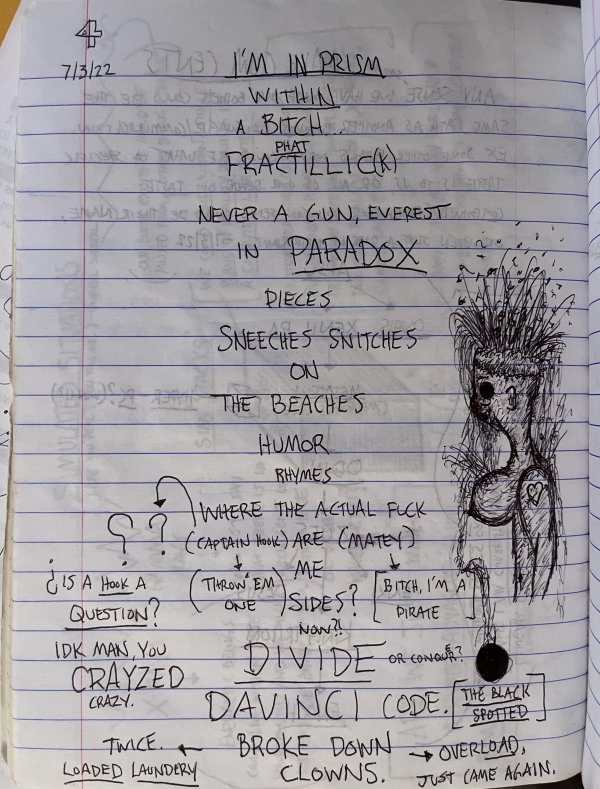 4
7/3/22
I'M IN PRISM
WITHIN
A BITCH..
PHAT
FRACTILLIC(K)
NEVER A GUN, EVEREST
IN PARADOX
PIECES
SNEECHES SNITCHES
ON
THE BEACHES
HUMOR
RHYMES
? ? WHERE THE ACTUAL FUCK
(CAPTAIN HOOK) ARE (MATEY)
ME
¿IS A HOOK A
QUESTION?
(THROW 'EM
ONE)
SIDES?
[BITCH, I'M A
PIRATE]
NOW?!
IDK MAN, YOU
CRAYZED
CRAZY.
DIVIDE OR CONQUER?
DAVINCI CODE. [THE BLACK
SPOTTED]
TWICE. ← BROKE DOWN → OVERLOAD,
LOADED LAUNDERY CLOWNS. JUST CAME AGAIN.